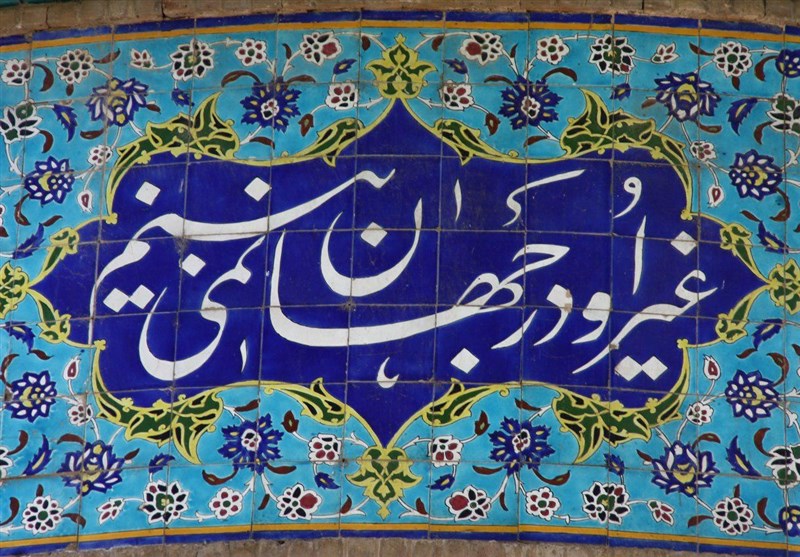 غیر او در جهان نمی بینیم